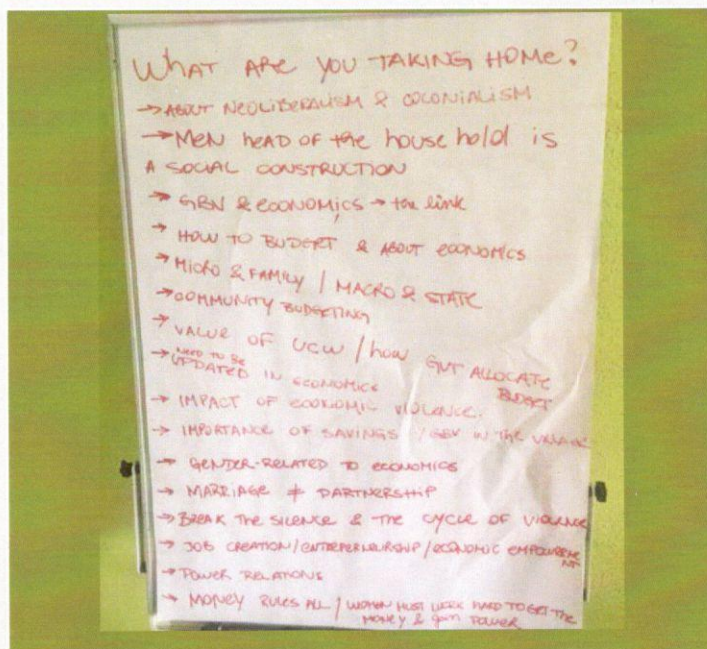 WHAT ARE YOU TAKING HOME?
→ ABOUT NEOLIBERALISM & COLONIALISM
→ MEN head OF the house hold is
A SOCIAL CONSTRUCTION
→ GBV & ECONOMICS → the link
→ HOW TO BUDGERT & ABOUT ECONOMICS
→ MICRO & FAMILY / MACRO & STATE
→ COMMUNITY BUDGETING
→ VALUE OF UCW / how GVT ALLOCATE
BUDGET
→ NEED TO BE
UPDATED IN ECONOMICS
→ IMPACT OF ECONOMIC VIOLENCE.
→ IMPORTANCE OF SAVINGS / GBV IN THE VILLAGE
→ GENDER-RELATED TO ECONOMICS
→ MARRIAGE ≠ PARTNERSHIP
→ BREAK THE SILENCE & THE CYCLE OF VIOLENCE
→ JOB CREATION / ENTREPERNEURSHIP / ECONOMIC EMPOWERME
NT
→ POWER RELATIONS
→ MONEY RULES ALL / WOMEN MUST WORK HARD TO GET THE
MONEY & gain POWER